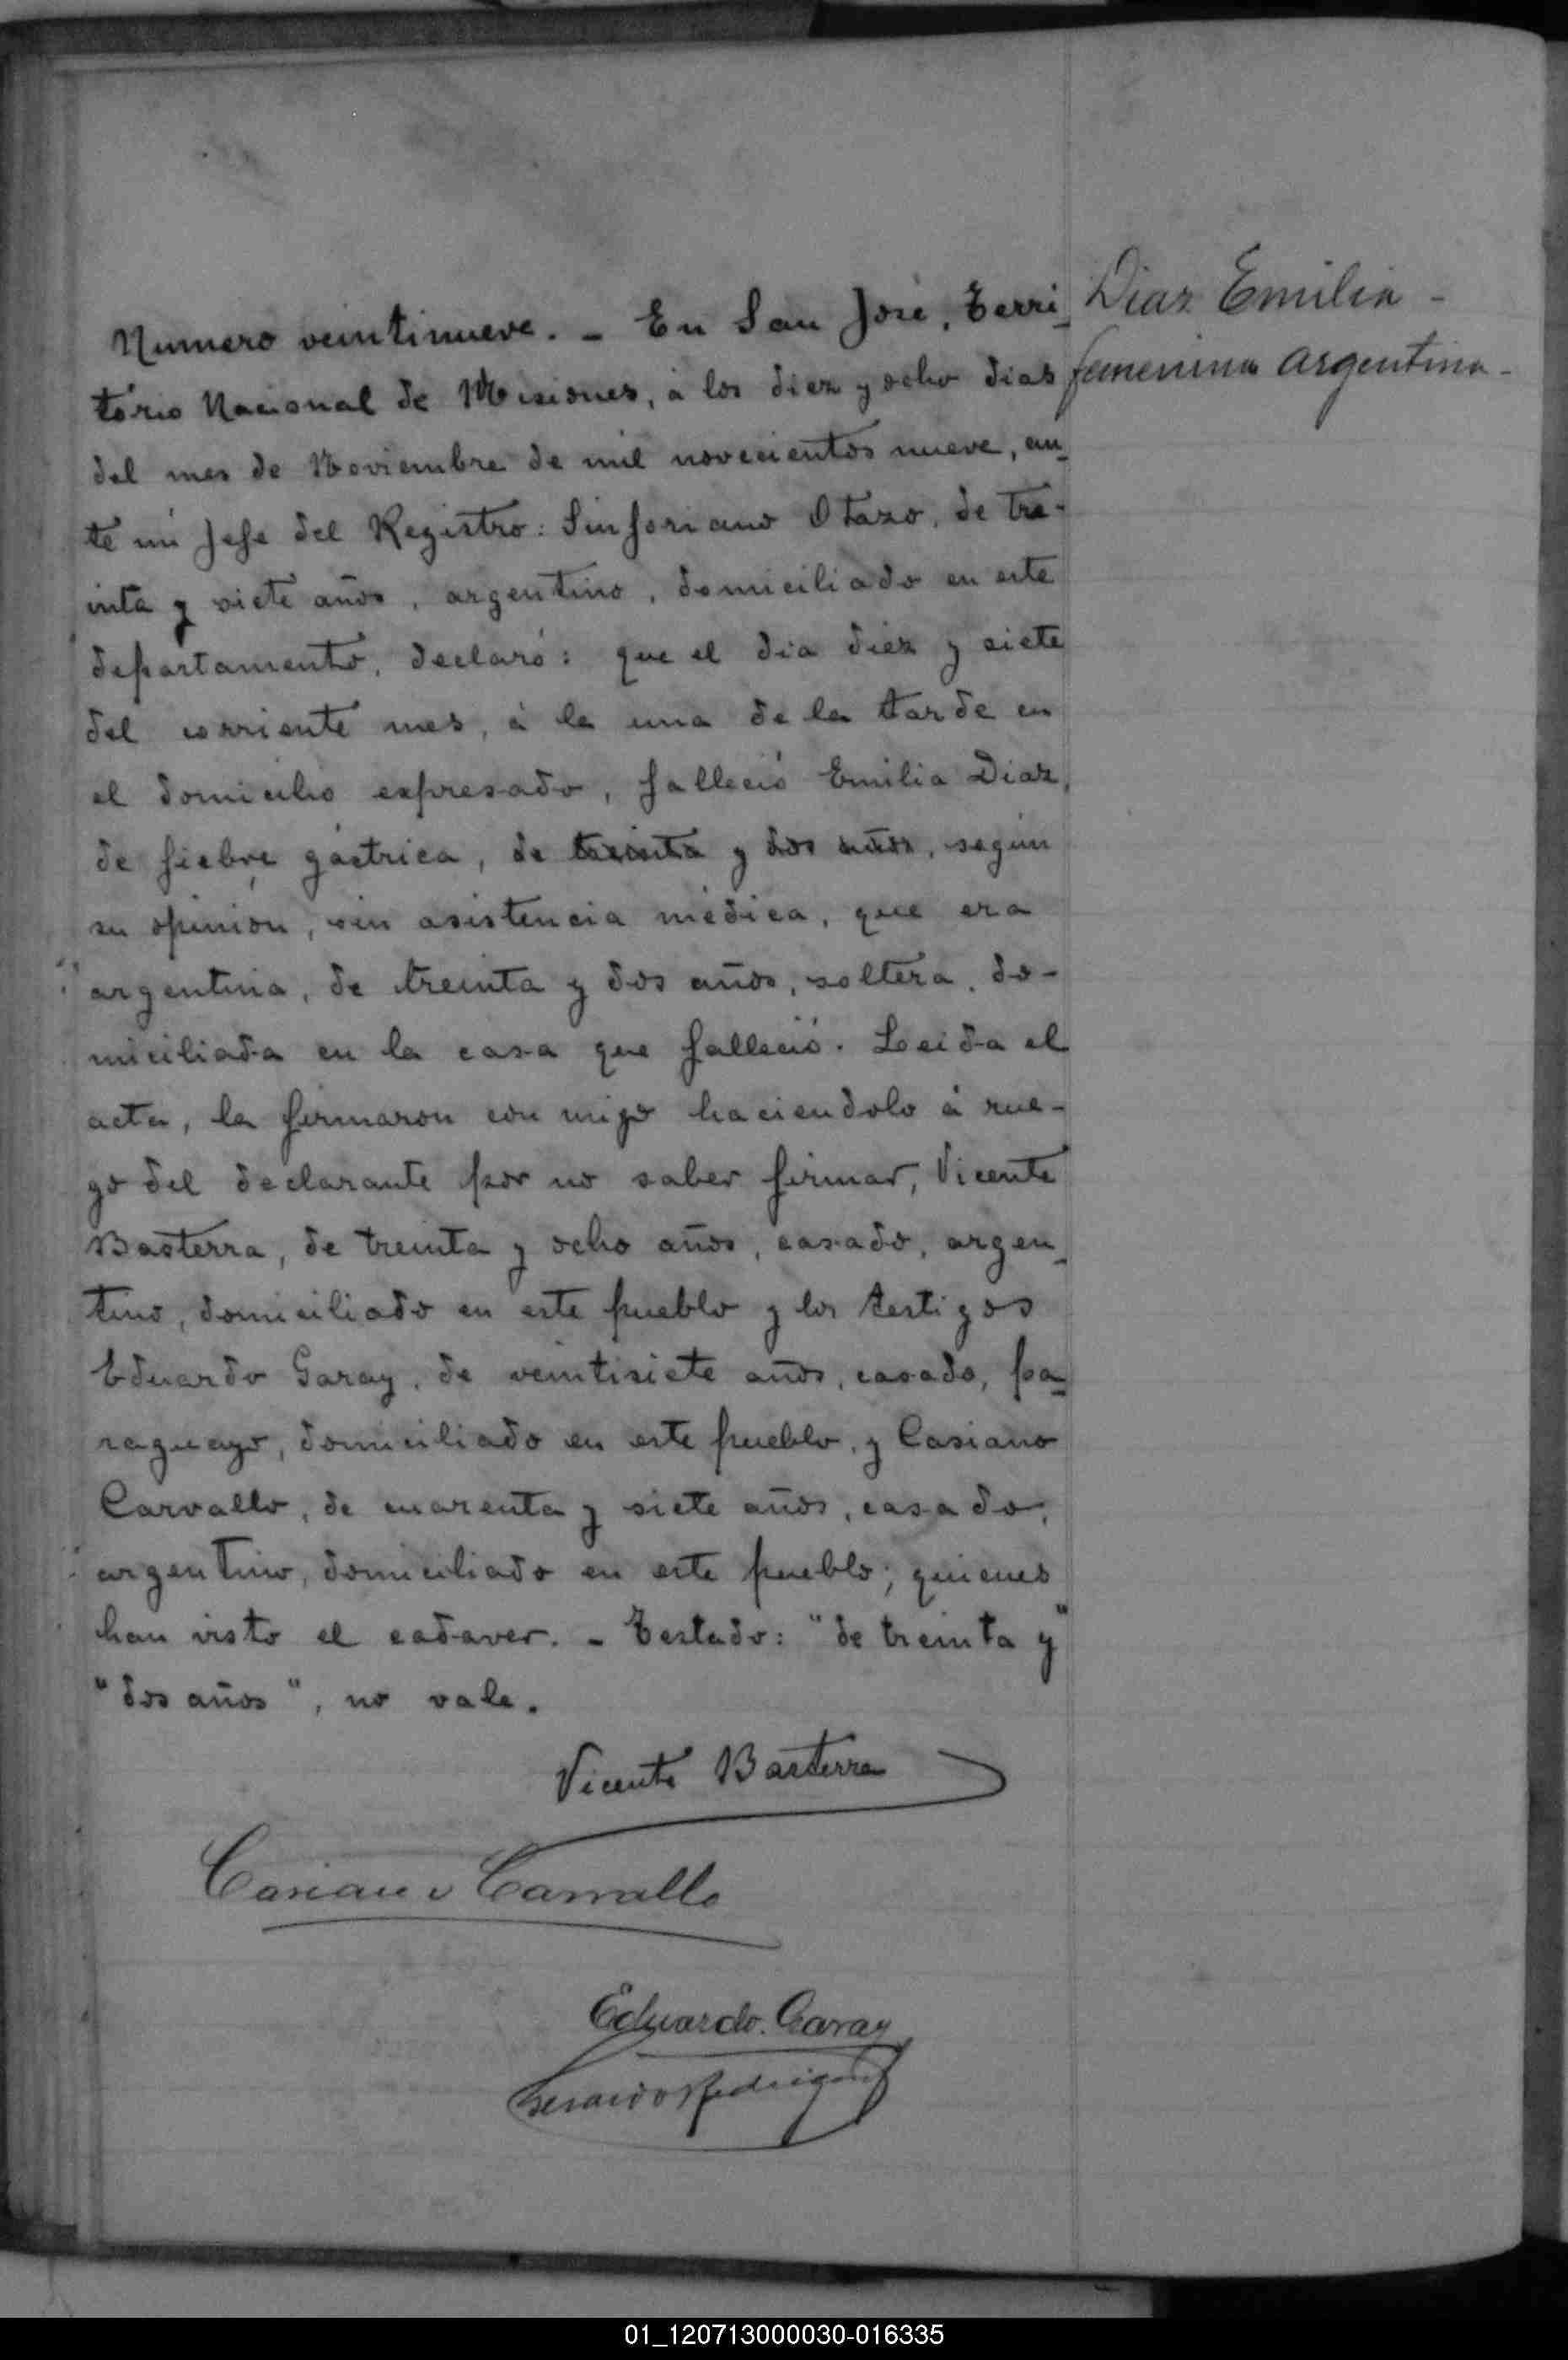 Numero veintinueve. – En San José, Terri_
Diaz Emilia –
torio Nacional de Misiones, á los diez y ocho dias
femenina argentina –
del mes de Noviembre de mil novecientos nueve, an_
te mi Jefe del Registro: Sinforiano Otazo, de tre-
inta y siete años, argentino, domiciliado en este
departamento, declaró: que el dia diez y siete
del corriente mes, á la una de la tarde en
el domicilio expresado, falleció Emilia Diaz,
de fiebre gástrica, de treinta y dos años, según
su opinion, sin asistencia médica, que era
argentina, de treinta y dos años, soltera, do-
miciliada en la casa que falleció. Leida el
acta, la firmaron con migo haciendolo á rue-
go del declarante por no saber firmar, Vicente
Basterra, de treinta y ocho años, casado, argen_
tino, domiciliado en este pueblo y los testigos
Eduardo Garay, de veintisiete años, casado, pa_
raguayo, domiciliado en este pueblo, y Casiano
Carvallo, de cuarenta y siete años, casado,
argentino, domiciliado en este pueblo; quienes
han visto el cadaver. – Testado: "de treinta y"
"dos años", no vale.
Vicente Basterra
Casiano Carvallo
Eduardo. Garay
01_120713000030-016335